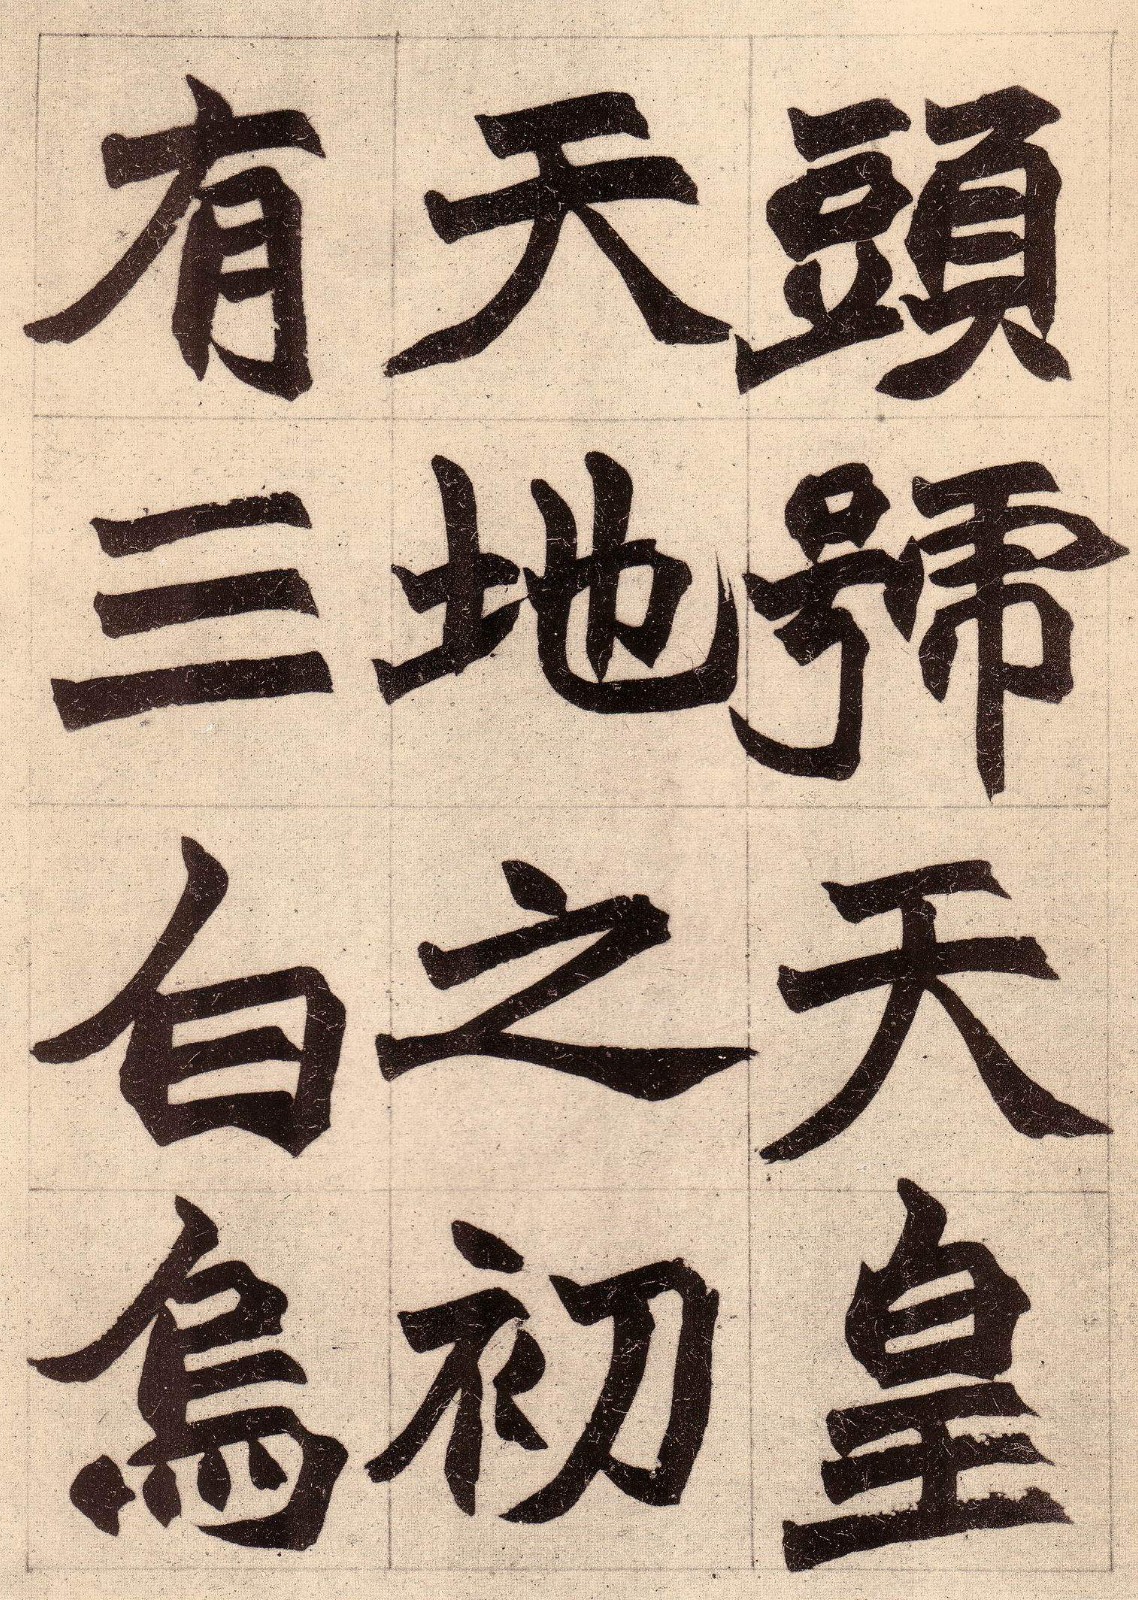 頭號天皇
天地之初
有三白烏